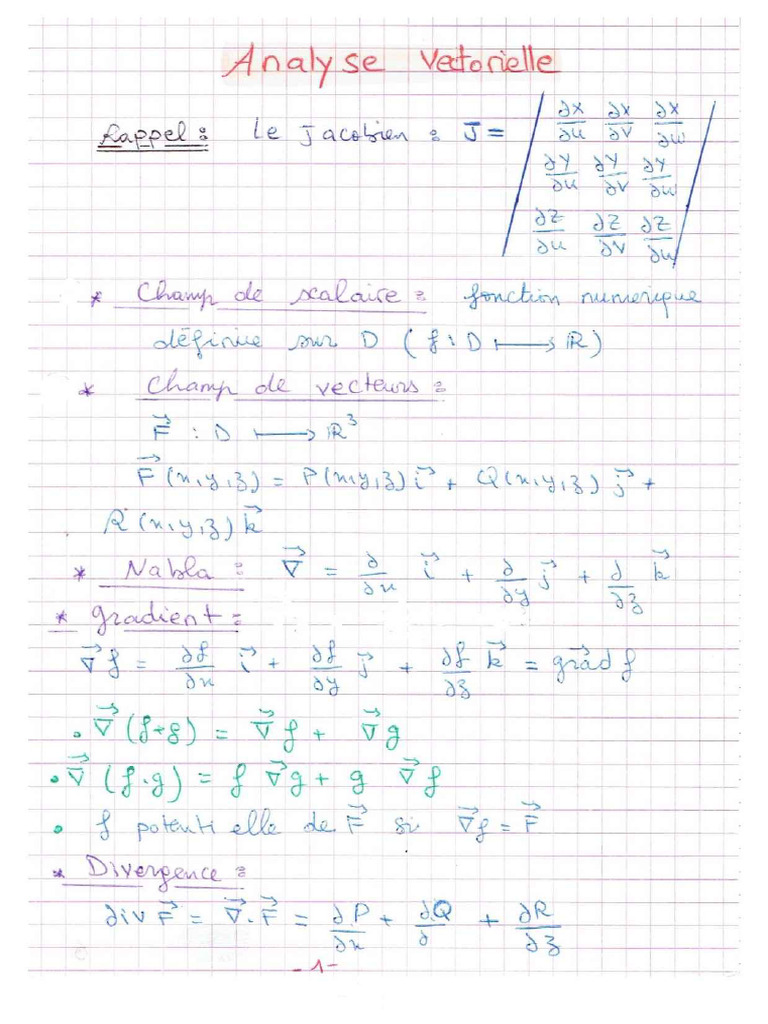 Analyse Vectorielle
Rappel : Le Jacobien : J = | ∂X/∂u ∂X/∂V ∂X/∂w |
| ∂Y/∂u ∂Y/∂V ∂Y/∂w |
| ∂Z/∂u ∂Z/∂V ∂Z/∂w |
* Champ de scalaire : fonction numerique
définie sur D ( f : D ⟼ R )
* Champ de vecteurs :
F⃗ : D ⟼ R³
F⃗ (x,y,z) = P(x,y,z) i⃗ + Q(x,y,z) j⃗ +
R (x,y,z) k⃗
* Nabla : ∇⃗ = ∂/∂x i⃗ + ∂/∂y j⃗ + ∂/∂z k⃗
* gradient :
∇⃗ f = ∂f/∂x i⃗ + ∂f/∂y j⃗ + ∂f/∂z k⃗ = grad⃗ f
• ∇⃗ (f+g) = ∇⃗ f + ∇⃗ g
• ∇⃗ (f·g) = f ∇⃗g + g ∇⃗ f
• f potentielle de F⃗ si ∇⃗f = F⃗
* Divergence :
div F⃗ = ∇⃗ . F⃗ = ∂P/∂x + ∂Q/∂ + ∂R/∂z
- 1 -